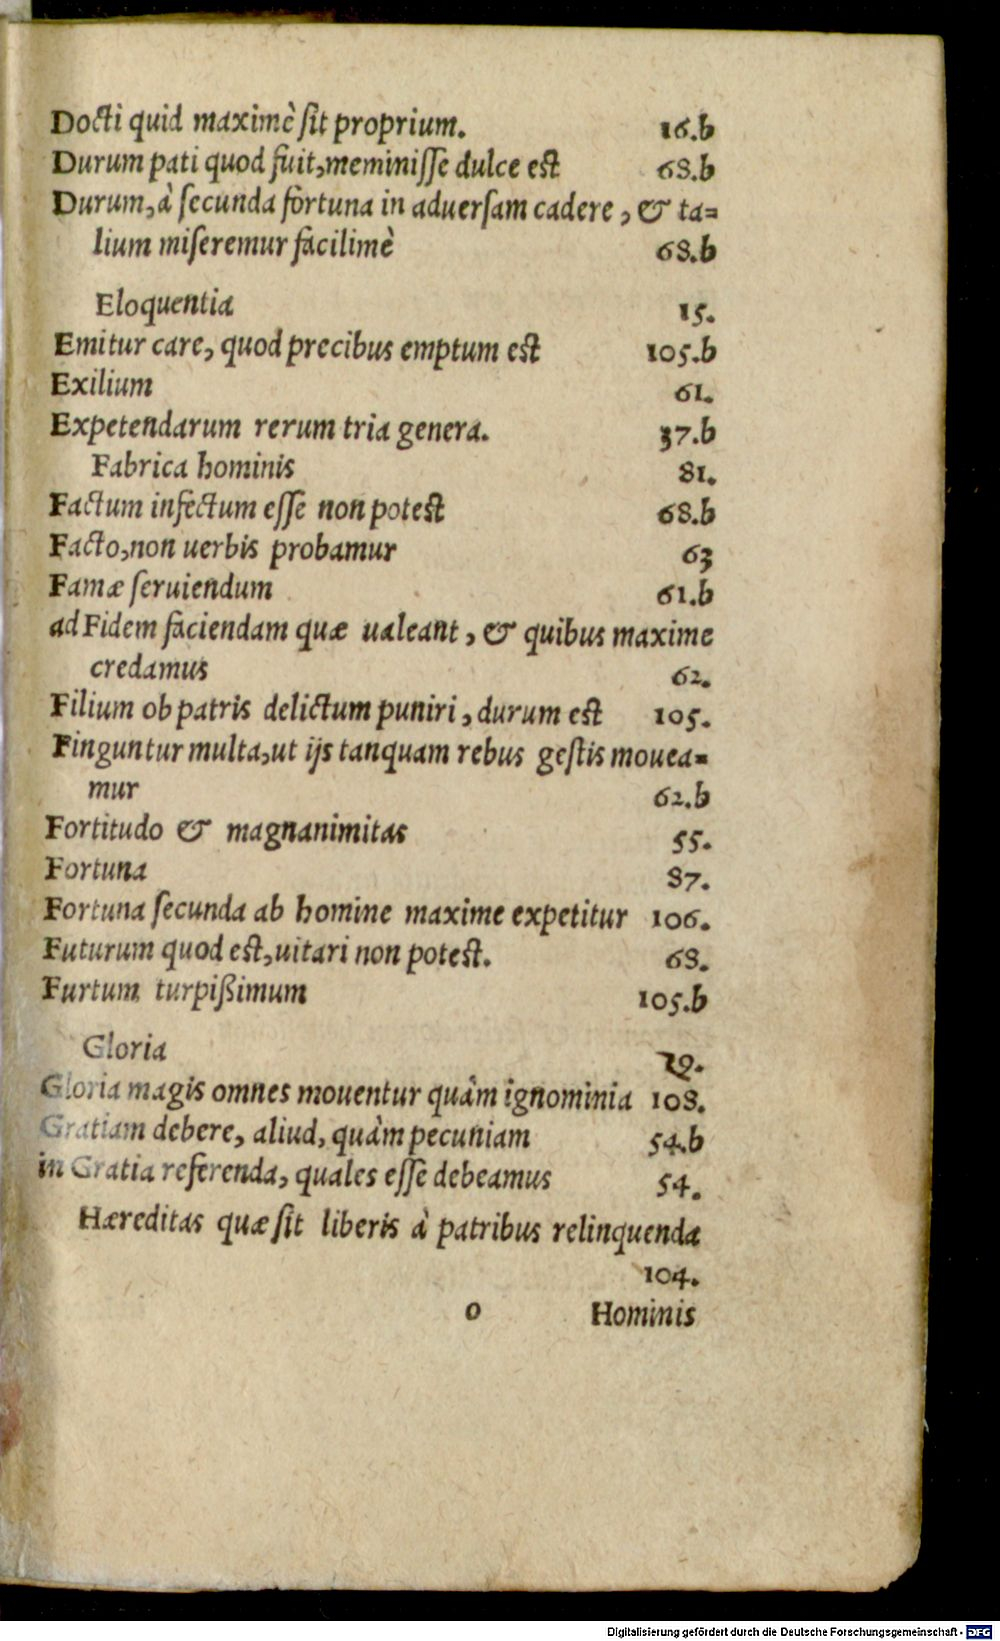 Docti quid maximè ſit proprium. 16.b
Durum pati quod fuit,meminiſſe dulce est 68.b
Durum,à ſecunda fortuna in aduerſam cadere , & ta=
lium miſeremur facilimè 68.b
Eloquentia 15.
Emitur care, quod precibus emptum est 105.b
Exilium 61.
Expetendarum rerum tria genera. 37.b
Fabrica hominis 81.
Factum infectum eſſe non potest 68.b
Facto,non uerbis probamur 63
Famæ ſeruiendum 61.b
ad Fidem faciendam quæ ualeant , & quibus maxime
credamus 62.
Filium ob patris delictum puniri , durum est 105.
Finguntur multa,ut ijs tanquam rebus geſtis mouea=
mur 62.b
Fortitudo & magnanimitas 55.
Fortuna 87.
Fortuna ſecunda ab homine maxime expetitur 106.
Futurum quod est,uitari non potest. 68.
Furtum turpißimum 105.b
Gloria 79.
Gloria magis omnes mouentur quàm ignominia 108.
Gratiam debere, aliud, quàm pecuniam 54.b
in Gratia referenda, quales eſſe debeamus 54.
Hæreditas quæ ſit liberis à patribus relinquenda
104.
o Hominis
Digitalisierung gefördert durch die Deutsche Forschungsgemeinschaft - DFG